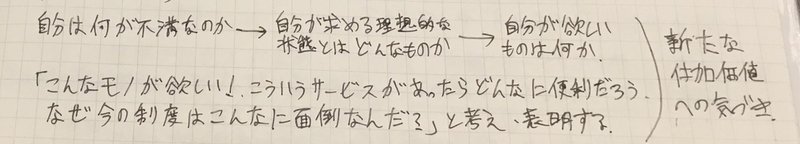 自分は何が不満なのか→自分が求める理想的な状態とはどんなものか→自分が欲しいものは何か.
「こんなモノが欲しい!.こういうサービスがあったらどんなに便利だろう.
なぜ今の制度はこんなに面倒なんだ?」と考え、表明する.
新たな
付加価値
への気づき.